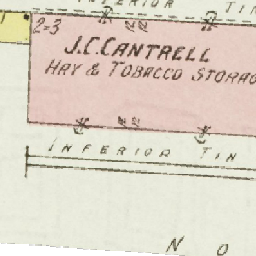 INFERIOR TIN
1
2=3
J.C. CANTRELL
HAY & TOBACCO STORAG
INFERIOR TIN
N O